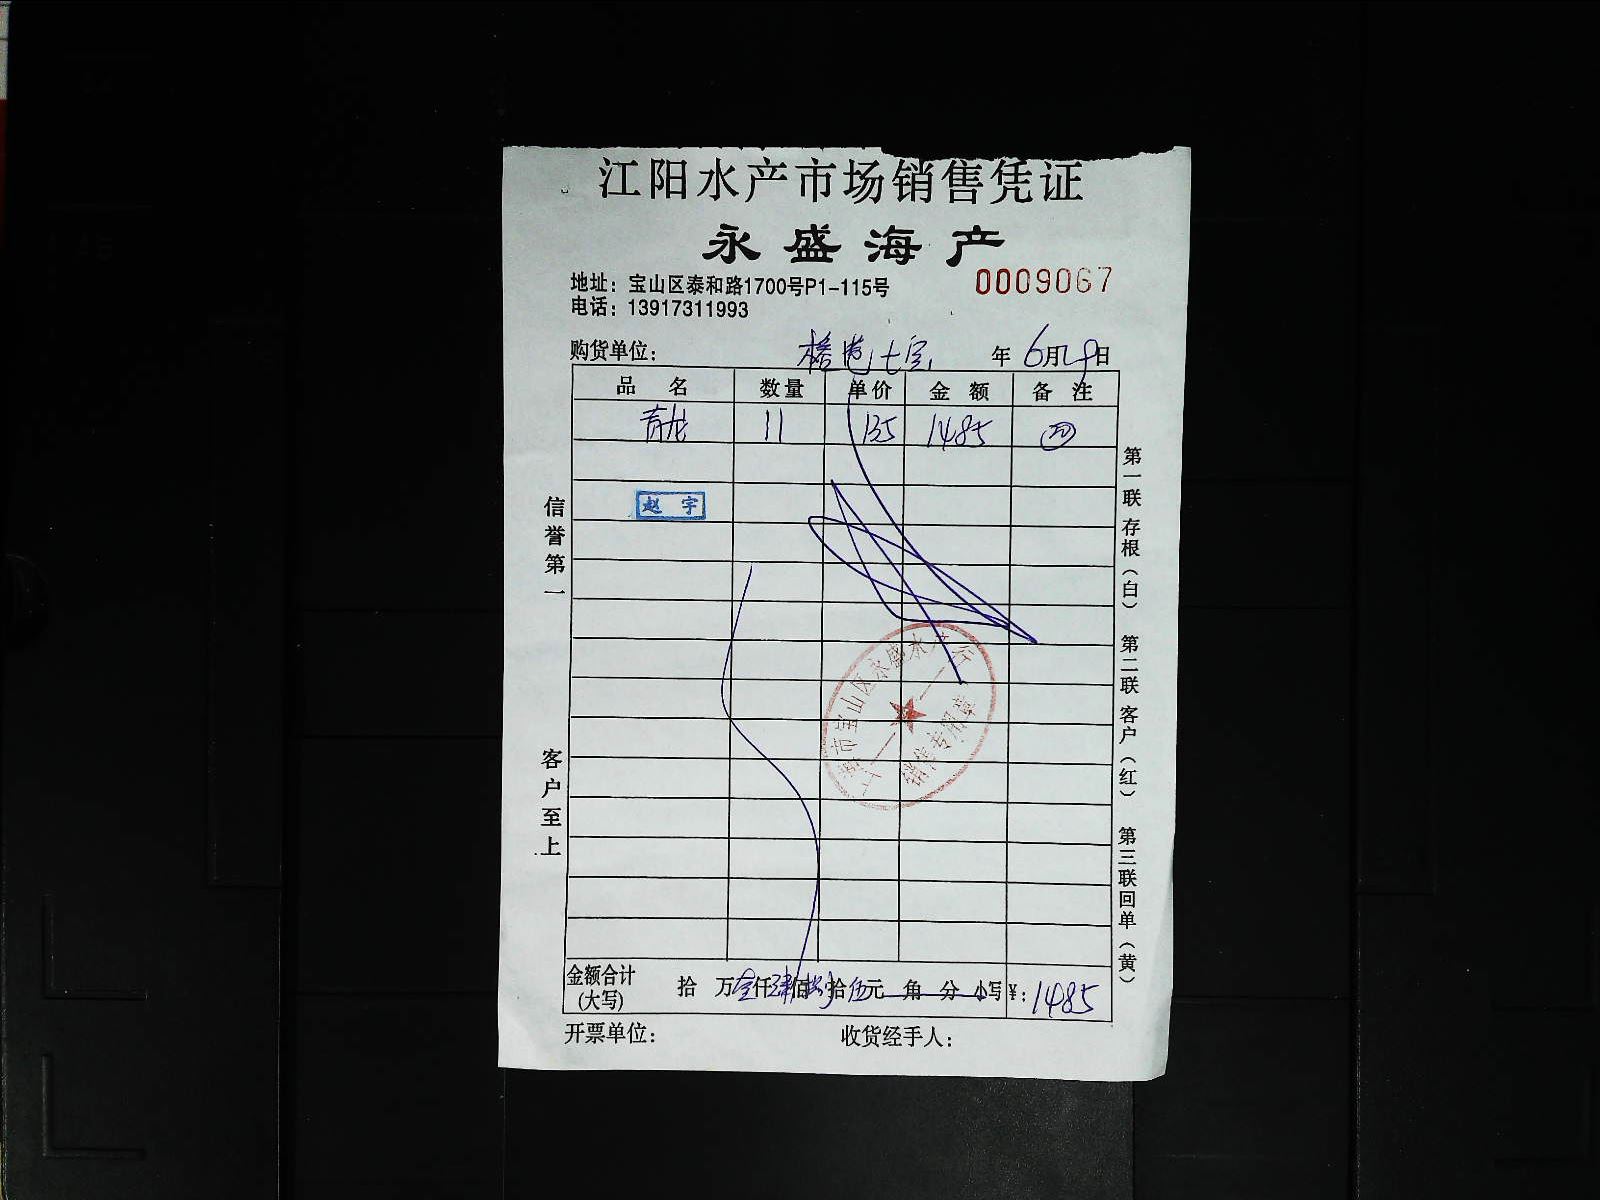 江阳水产市场销售凭证
永盛海产
地址：宝山区泰和路1700号P1-115号
0009067
电话：13917311993
购货单位： 年 6月29日
品 名 数量 单价 金 额 备 注
青龙 11 135 1485
赵 宇
信誉第一
客户至上
第一联 存根（白） 第二联 客户（红） 第三联 回单（黄）
上海市宝山区永盛水产行
销售专用章
金额合计(大写) 拾 万壹仟肆佰捌拾伍元 角 分 小写¥：1485
开票单位： 收货经手人：